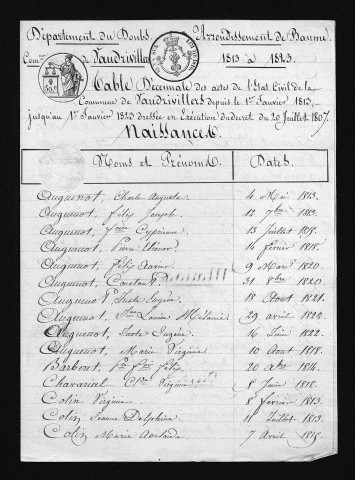 Département du Doubs. Arrondissement de Baume.
Com.ne de Vaudrivillers 1813 à 1823.
Table Décennale des actes de l'Etat Civil de la
Commune de Vaudrivillers depuis le 1er Janvier 1813,
jusqu'au 1er Janvier 1823 dressée en Exécution du decret du 20 Juillet 1807.
Naissances.
Noms et Prénoms. Dates.
Auguenot, Charle Auguste 4 Mai 1813.
Auguenot, félix Joseph. 12 7bre 1813.
Auguenot, Cyprienne 13 Juillet 1815.
Auguenot, Pierre 14 février 1818.
Auguenot, félix Xavier 9 Mars 1820.
Auguenot, Constant 31 8bre 1820.
Auguenot Eugène. 18 Aout 1821.
Auguenot, Louise Mélanie 29 avril 1824.
Auguenot, Eugène. 16 Juin 1822.
Auguenot, Marie Virginie 10 Aout 1818.
Barbout, félix 20 Xbre 1814.
Chavariel Virginie 8 Juin 1818.
Colin Virginie 8 fevrier 1813.
Colin Jeanne Delphine 18 Juillet 1813.
Colin Marie 7 Avril 1815.